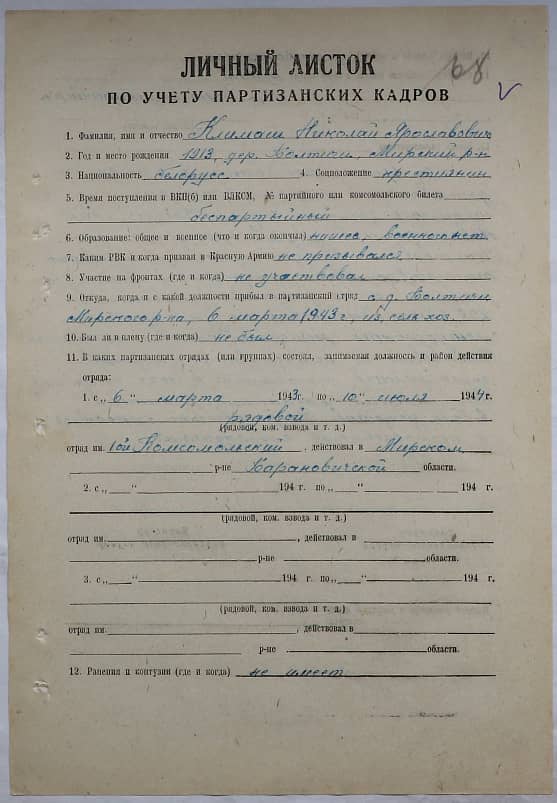 68
ЛИЧНЫЙ ЛИСТОК
ПО УЧЕТУ ПАРТИЗАНСКИХ КАДРОВ
1. Фамилия, имя и отчество Климаш Николай Ярославович
2. Год и место рождения 1913, дер. Болтичи, Мирский р-н
3. Национальность белорусс 4. Соцположение крестиянин
5. Время поступления в ВКП(б) или ВЛКСМ, № партийного или комсомольского билета
беспартыйный
6. Образование: общее и военное (что и когда окончил) военного нет
7. Каким РВК и когда призван в Красную Армию не призывался
8. Участие на фронтах (где и когда) не участвовал
9. Откуда, когда и с какой должности прибыл в партизанский отряд с д. Болтичи
Мирского р-на, 6 марта 1943 г, из сель хоз.
10. Был ли в плену (где и когда) не был
11. В каких партизанских отрядах (или группах) состоял, занимаемая должность и район действия
отряда:
1. с „ 6 “ марта 1943г. по „ 10 “ июля 1944г.
рядовой
(рядовой, ком. взвода и т. д.)
отряд им. 1ой Комсомольский, действовал в Мирском
р-не Барановичской области.
2. с „ “ 194 г. по „ “ 194 г.
(рядовой, ком. взвода и т. д.)
отряд им. , действовал в
р-не области.
3. с „ “ 194 г. по „ “ 194 г.
(рядовой, ком. взвода и т. д.)
отряд им. , действовал в
р-не области.
12. Ранения и контузии (где и когда) не имеет